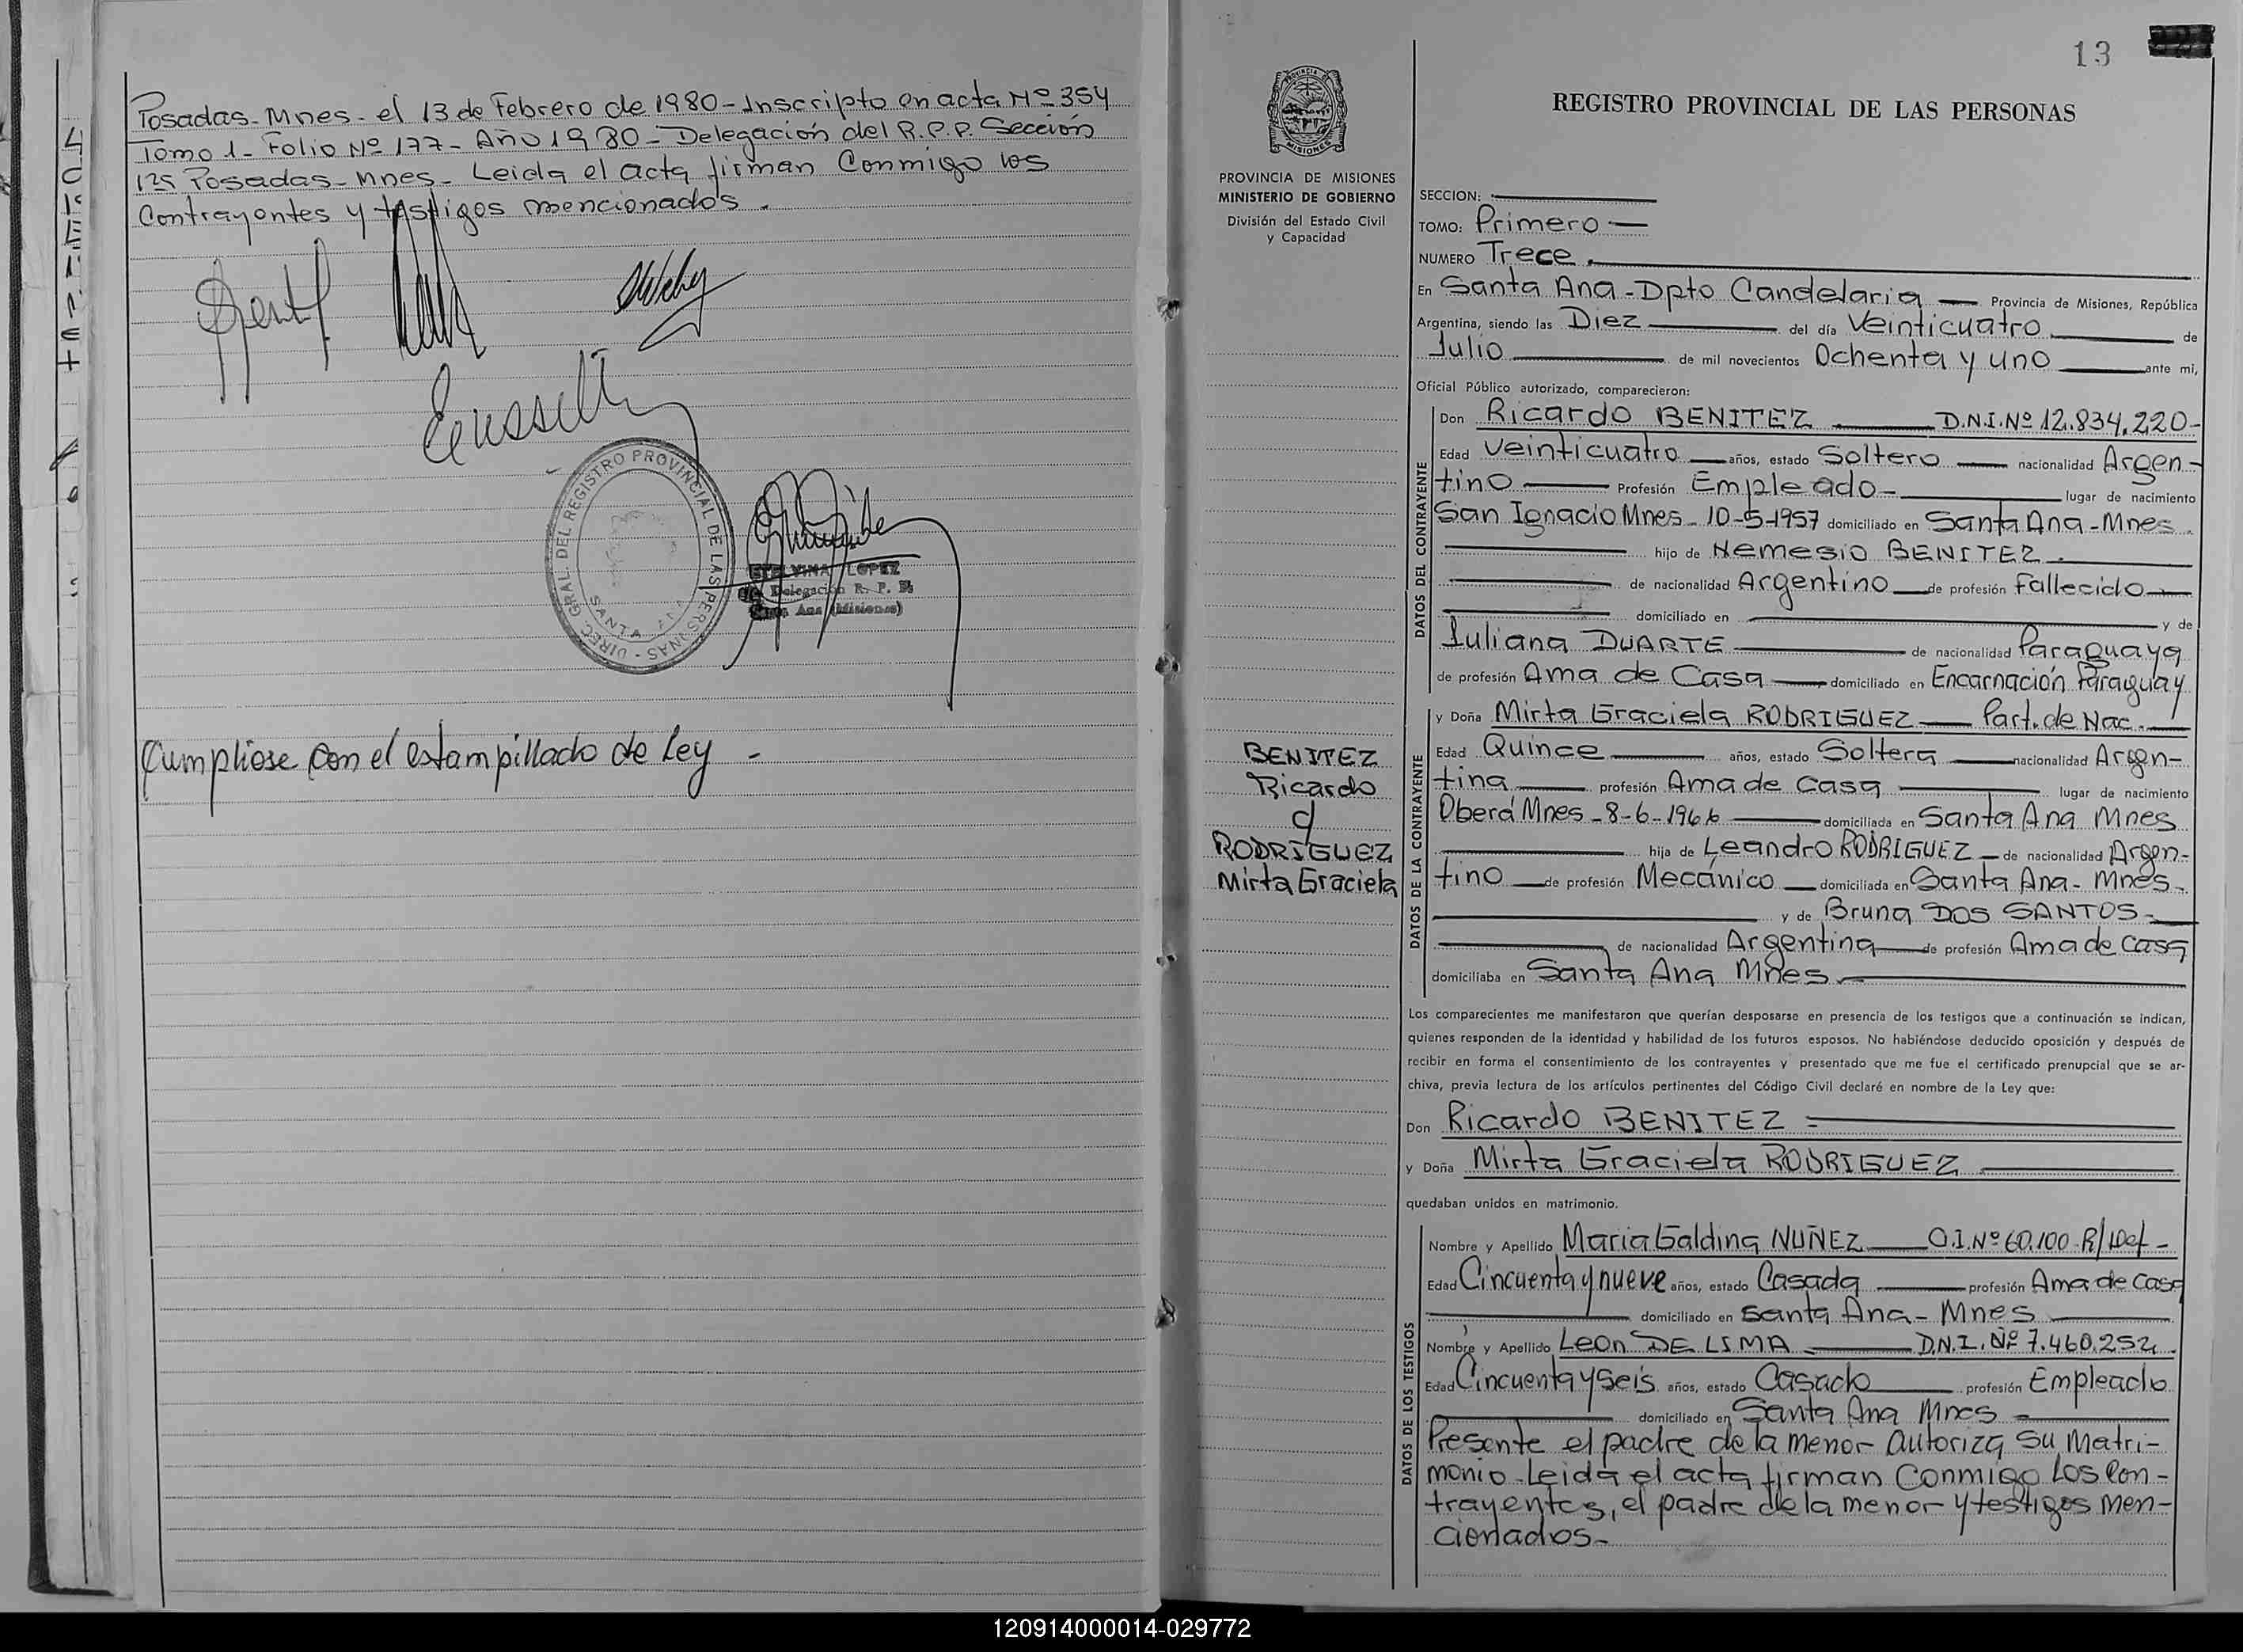 Posadas-Mnes- el 13 de Febrero de 1980-Inscripto en acta Nº 354
Tomo 1- Folio Nº 177- Año 1980- Delegación del R.P.P. Sección
Posadas-Mnes- Leida el acta firman Conmigo los
Contrayentes y testigos mencionados.
DIREC. GRAL. DEL REGISTRO PROVINCIAL DE LAS PERSONAS -
SANTA ANA
ETELVINA LOPEZ
Delegación R. P. P.
Santa Ana (Misiones)
Cumpliose con el estampillado de Ley -
13
PROVINCIA DE MISIONES
MINISTERIO DE GOBIERNO
División del Estado Civil
y Capacidad
BENITEZ
Ricardo
c/
RODRIGUEZ
Mirta Graciela
REGISTRO PROVINCIAL DE LAS PERSONAS
SECCION:
TOMO: Primero
NUMERO Trece
En Santa Ana-Dpto Candelaria Provincia de Misiones, República
Argentina, siendo las Diez del día Veinticuatro de
Julio de mil novecientos Ochenta y uno ante mi,
Oficial Público autorizado, comparecieron:
DATOS DEL CONTRAYENTE
Don Ricardo BENITEZ D.N.I.Nº 12.834.220-
Edad veinticuatro años, estado Soltero nacionalidad Argen-
tino Profesión Empleado- lugar de nacimiento
San Ignacio Mnes- 10-5-1957 domiciliado en Santa Ana-Mnes
hijo de Nemesio BENITEZ
de nacionalidad Argentino de profesión Fallecido
domiciliado en y de
Juliana DUARTE de nacionalidad Paraguaya
de profesión Ama de Casa domiciliado en Encarnación Paraguay
DATOS DE LA CONTRAYENTE
y Doña Mirta Graciela RODRIGUEZ Part. de Nac.
Edad Quince años, estado Soltera nacionalidad Argen-
tina profesión Ama de Casa lugar de nacimiento
Oberá Mnes-8-6-1966 domiciliada en Santa Ana Mnes
hija de Leandro RODRIGUEZ de nacionalidad Argen-
tino de profesión Mecánico domiciliada en Santa Ana- Mnes-
y de Bruna DOS SANTOS-
de nacionalidad Argentina de profesión Ama de Casa
domiciliaba en Santa Ana Mnes
Los comparecientes me manifestaron que querían desposarse en presencia de los testigos que a continuación se indican,
quienes responden de la identidad y habilidad de los futuros esposos. No habiéndose deducido oposición y después de
recibir en forma el consentimiento de los contrayentes y presentado que me fue el certificado prenupcial que se ar-
chiva, previa lectura de los artículos pertinentes del Código Civil declaré en nombre de la Ley que:
Don Ricardo BENITEZ
y Doña Mirta Graciela RODRIGUEZ
quedaban unidos en matrimonio.
DATOS DE LOS TESTIGOS
Nombre y Apellido Maria Galdina NUÑEZ O.I.Nº 60.100
Edad Cincuenta y nueve años, estado Casada profesión Ama de Casa
domiciliado en Santa Ana- Mnes
Nombre y Apellido Leon DE LIMA D.N.I. Nº 7.460.252
Edad Cincuenta y Seis años, estado Casado profesión Empleado
domiciliado en Santa Ana Mnes
Presente el padre de la menor Autoriza Su Matri-
monio-Leida el acta firman Conmigo Los Con-
trayentes, el padre de la menor y testigos Men-
cionados-
120914000014-029772